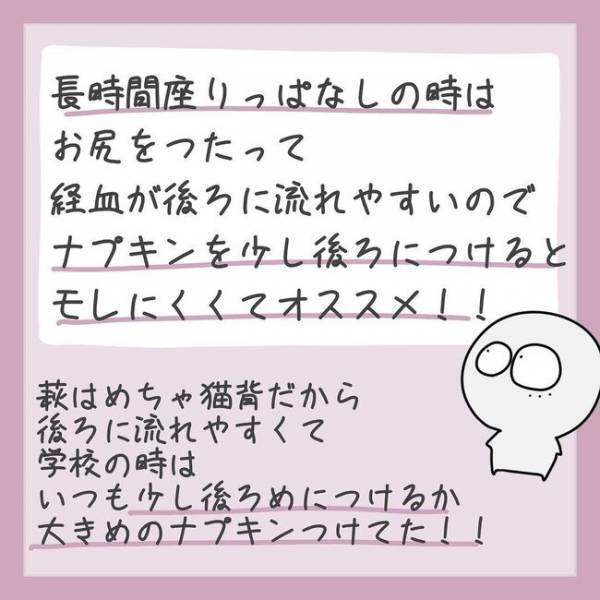 長時間座りっぱなしの時は
お尻をつたって
経血が後ろに流れやすいので
ナプキンを少し後ろにつけると
モレにくくてオススメ!!
萩はめちゃ猫背だから
後ろに流れやすくて
学校の時は
いつも少し後ろめにつけるか
大きめのナプキンつけてた!!